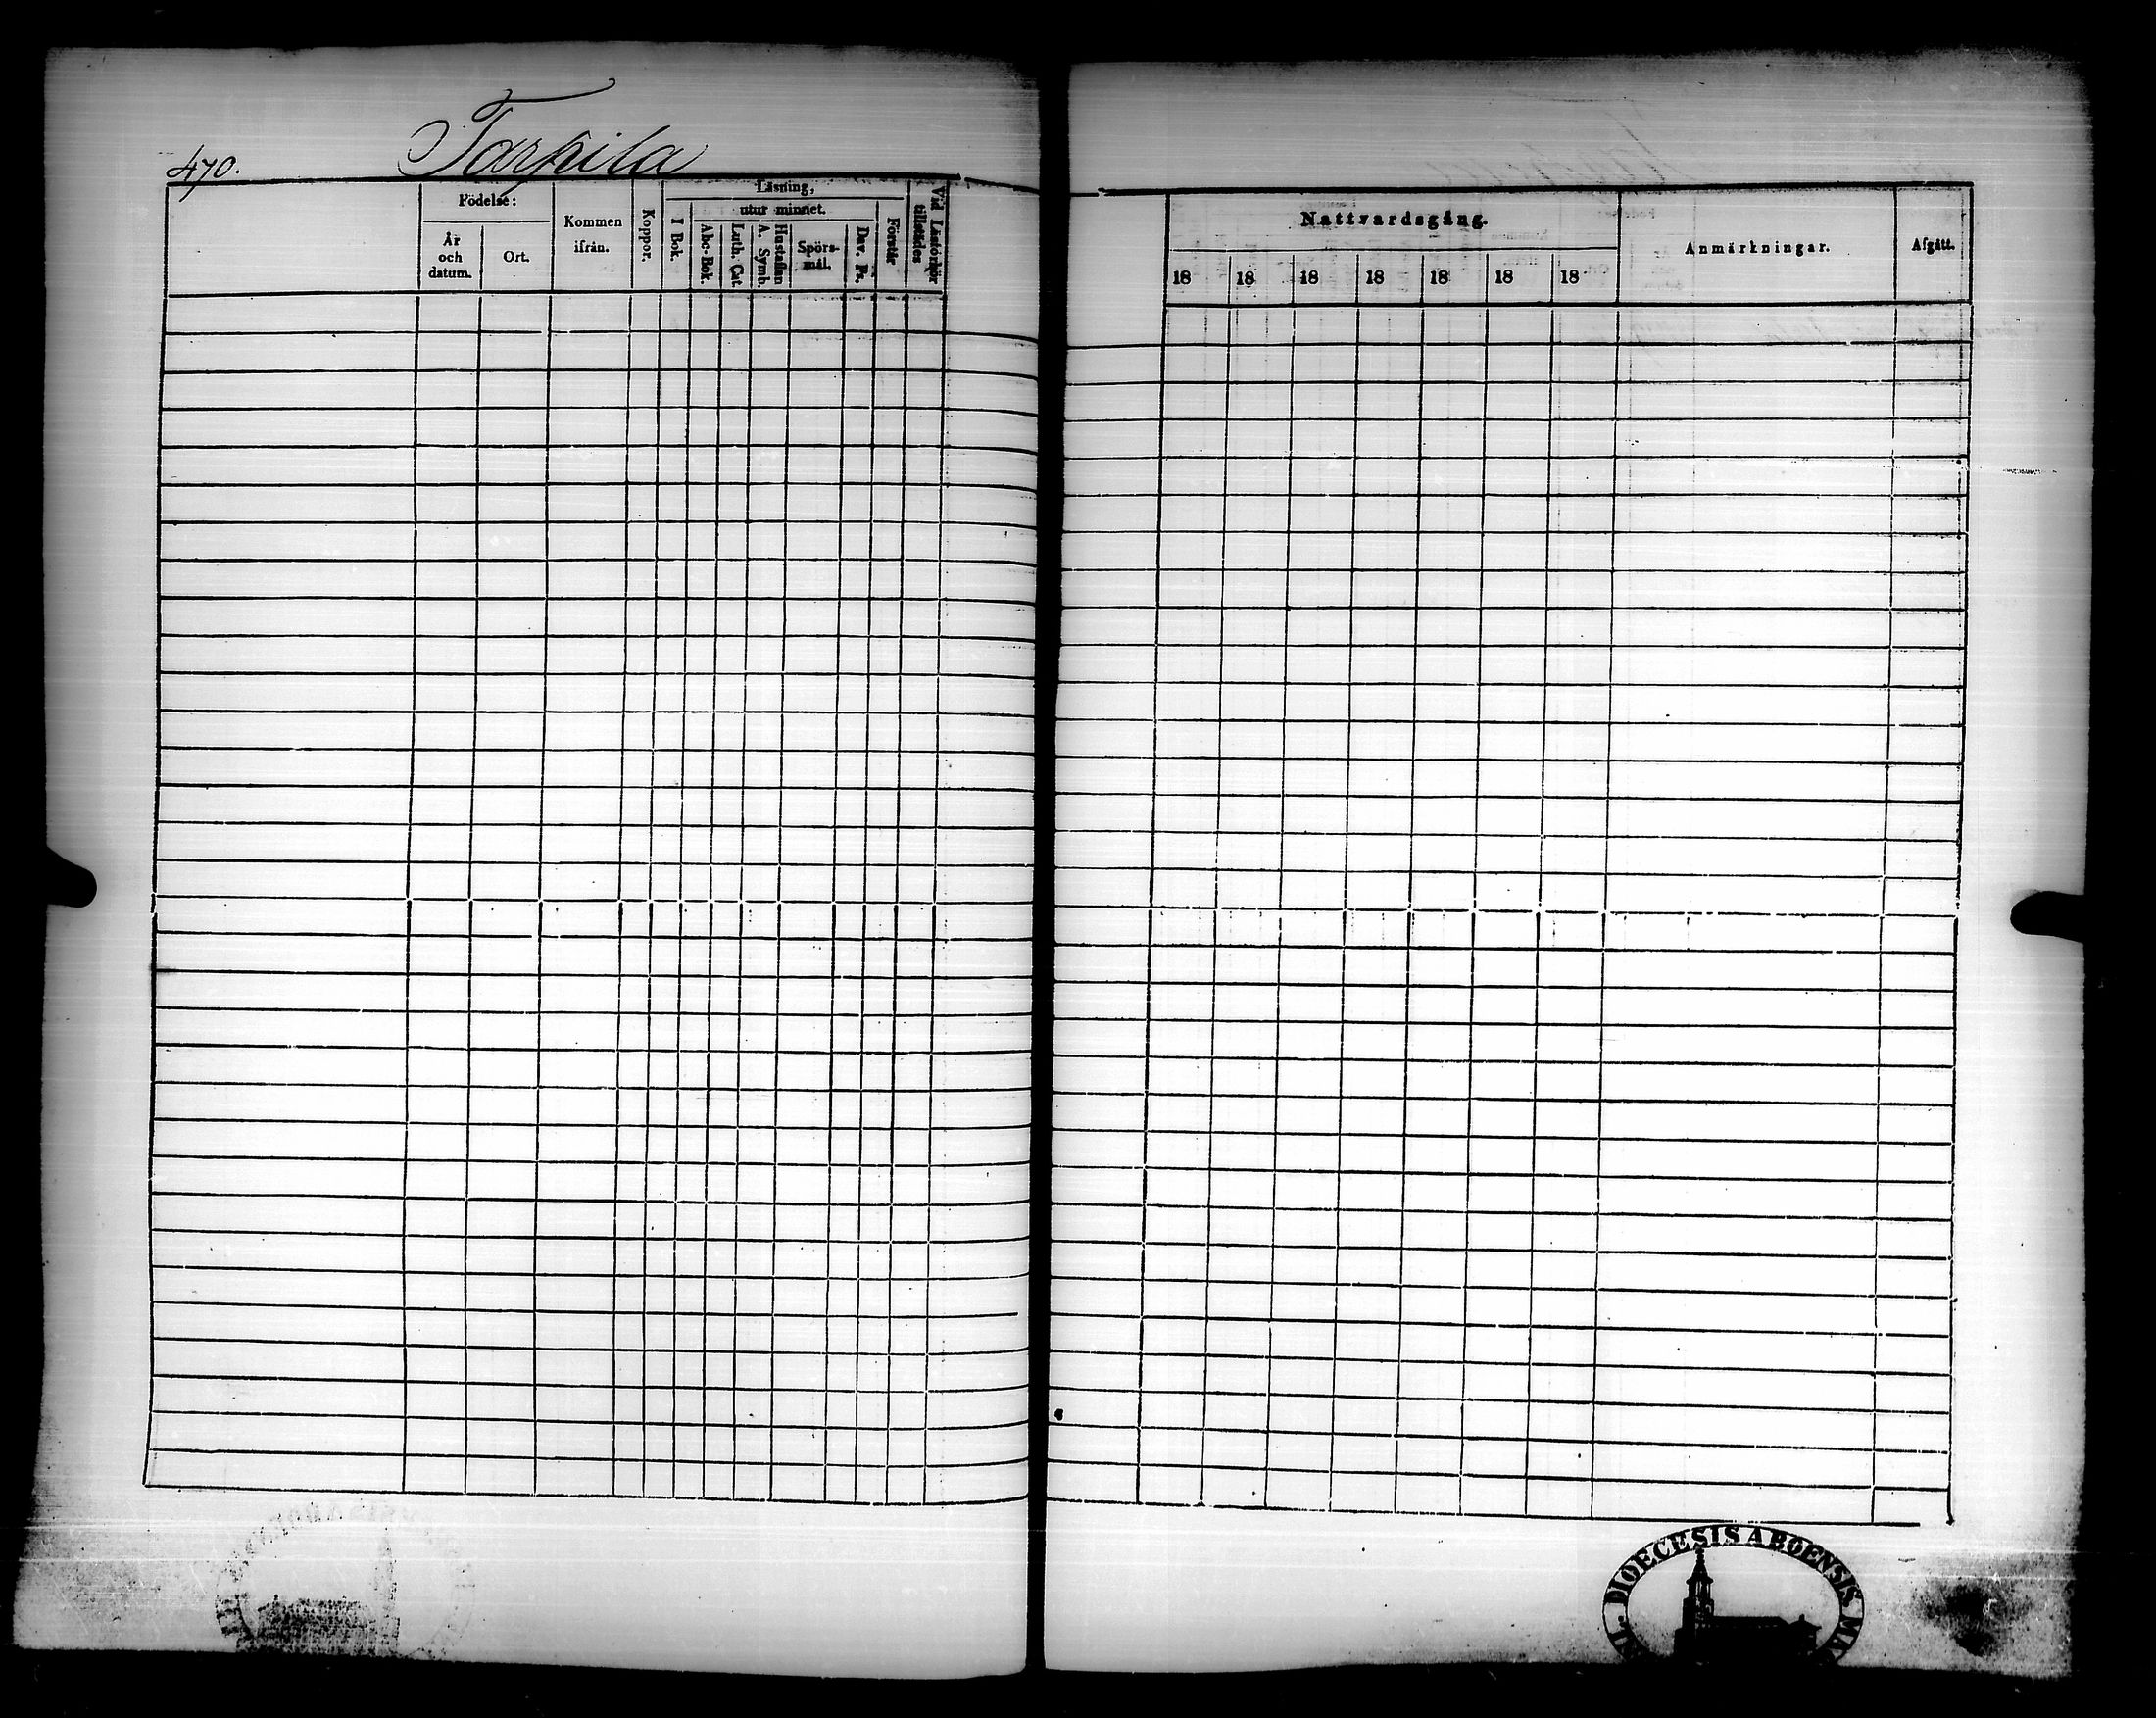 470.
Tarpila
Födelse:
År
och
datum.
Ort.
Kommen
ifrån.
Koppor.
Läsning,
utur minnet.
I Bok.
Abc-Bok.
Luth. Cat.
Hustaflan
A. Symb.
Spörs-
mål.
Dav. Ps.
Förstår
Vid Läsförhör
tillstädes
Nattvardsgång.
18 18 18 18 18 18 18
Anmärkningar.
Afgått.
DIOECESIS ABOENSIS